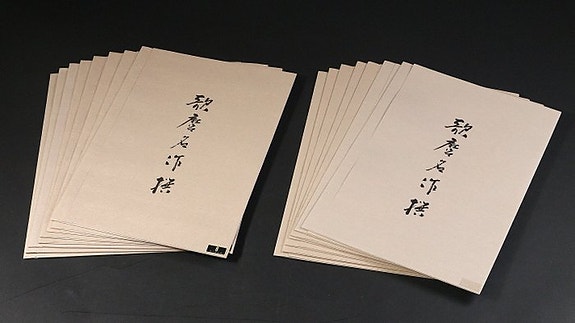 歌麿名作撰
歌麿名作撰